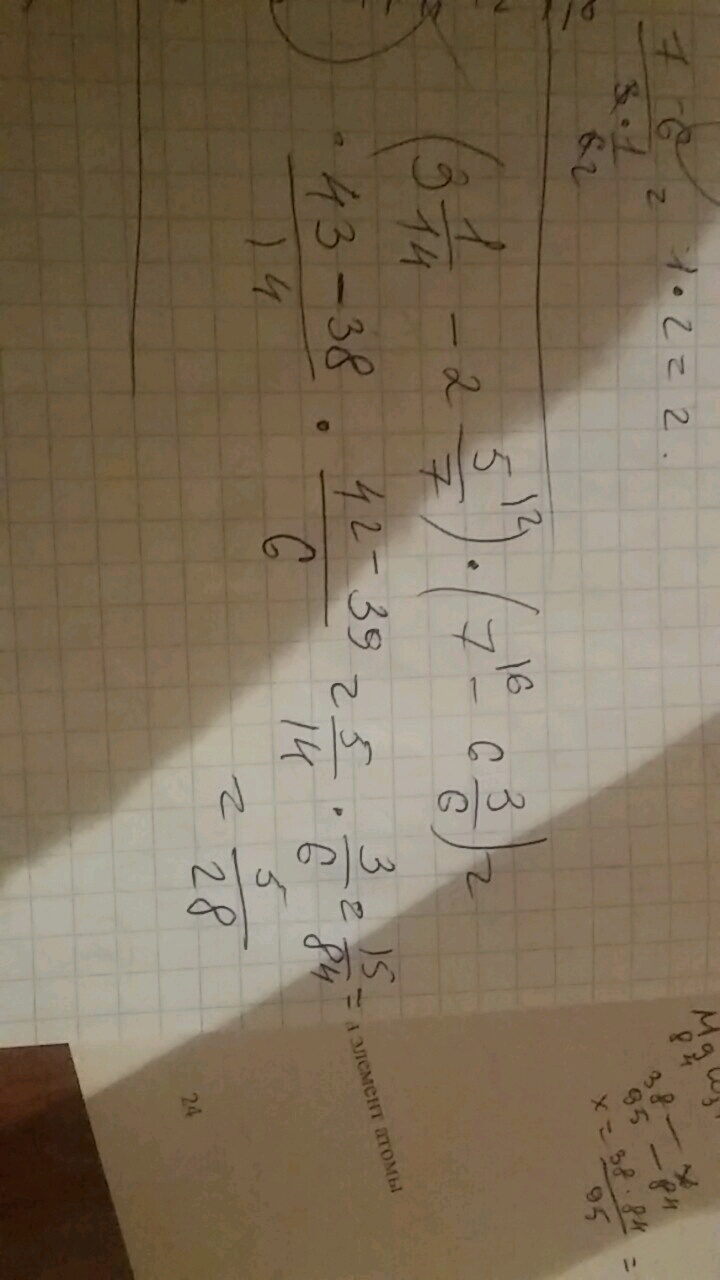 7 - 6 / 3 · 1/62 = 1 · 2 = 2.
(3 1/14 - 2 5/7 |2) · (7 |6 - 6 3/6) =
· 43 - 38 / 14 · 42 - 39 / 6 = 5/14 · 3/6 = 15/84 =
= 5/28
38 — x
95 — 84
x = 38 · 84 / 95 =
элемент атомы
24